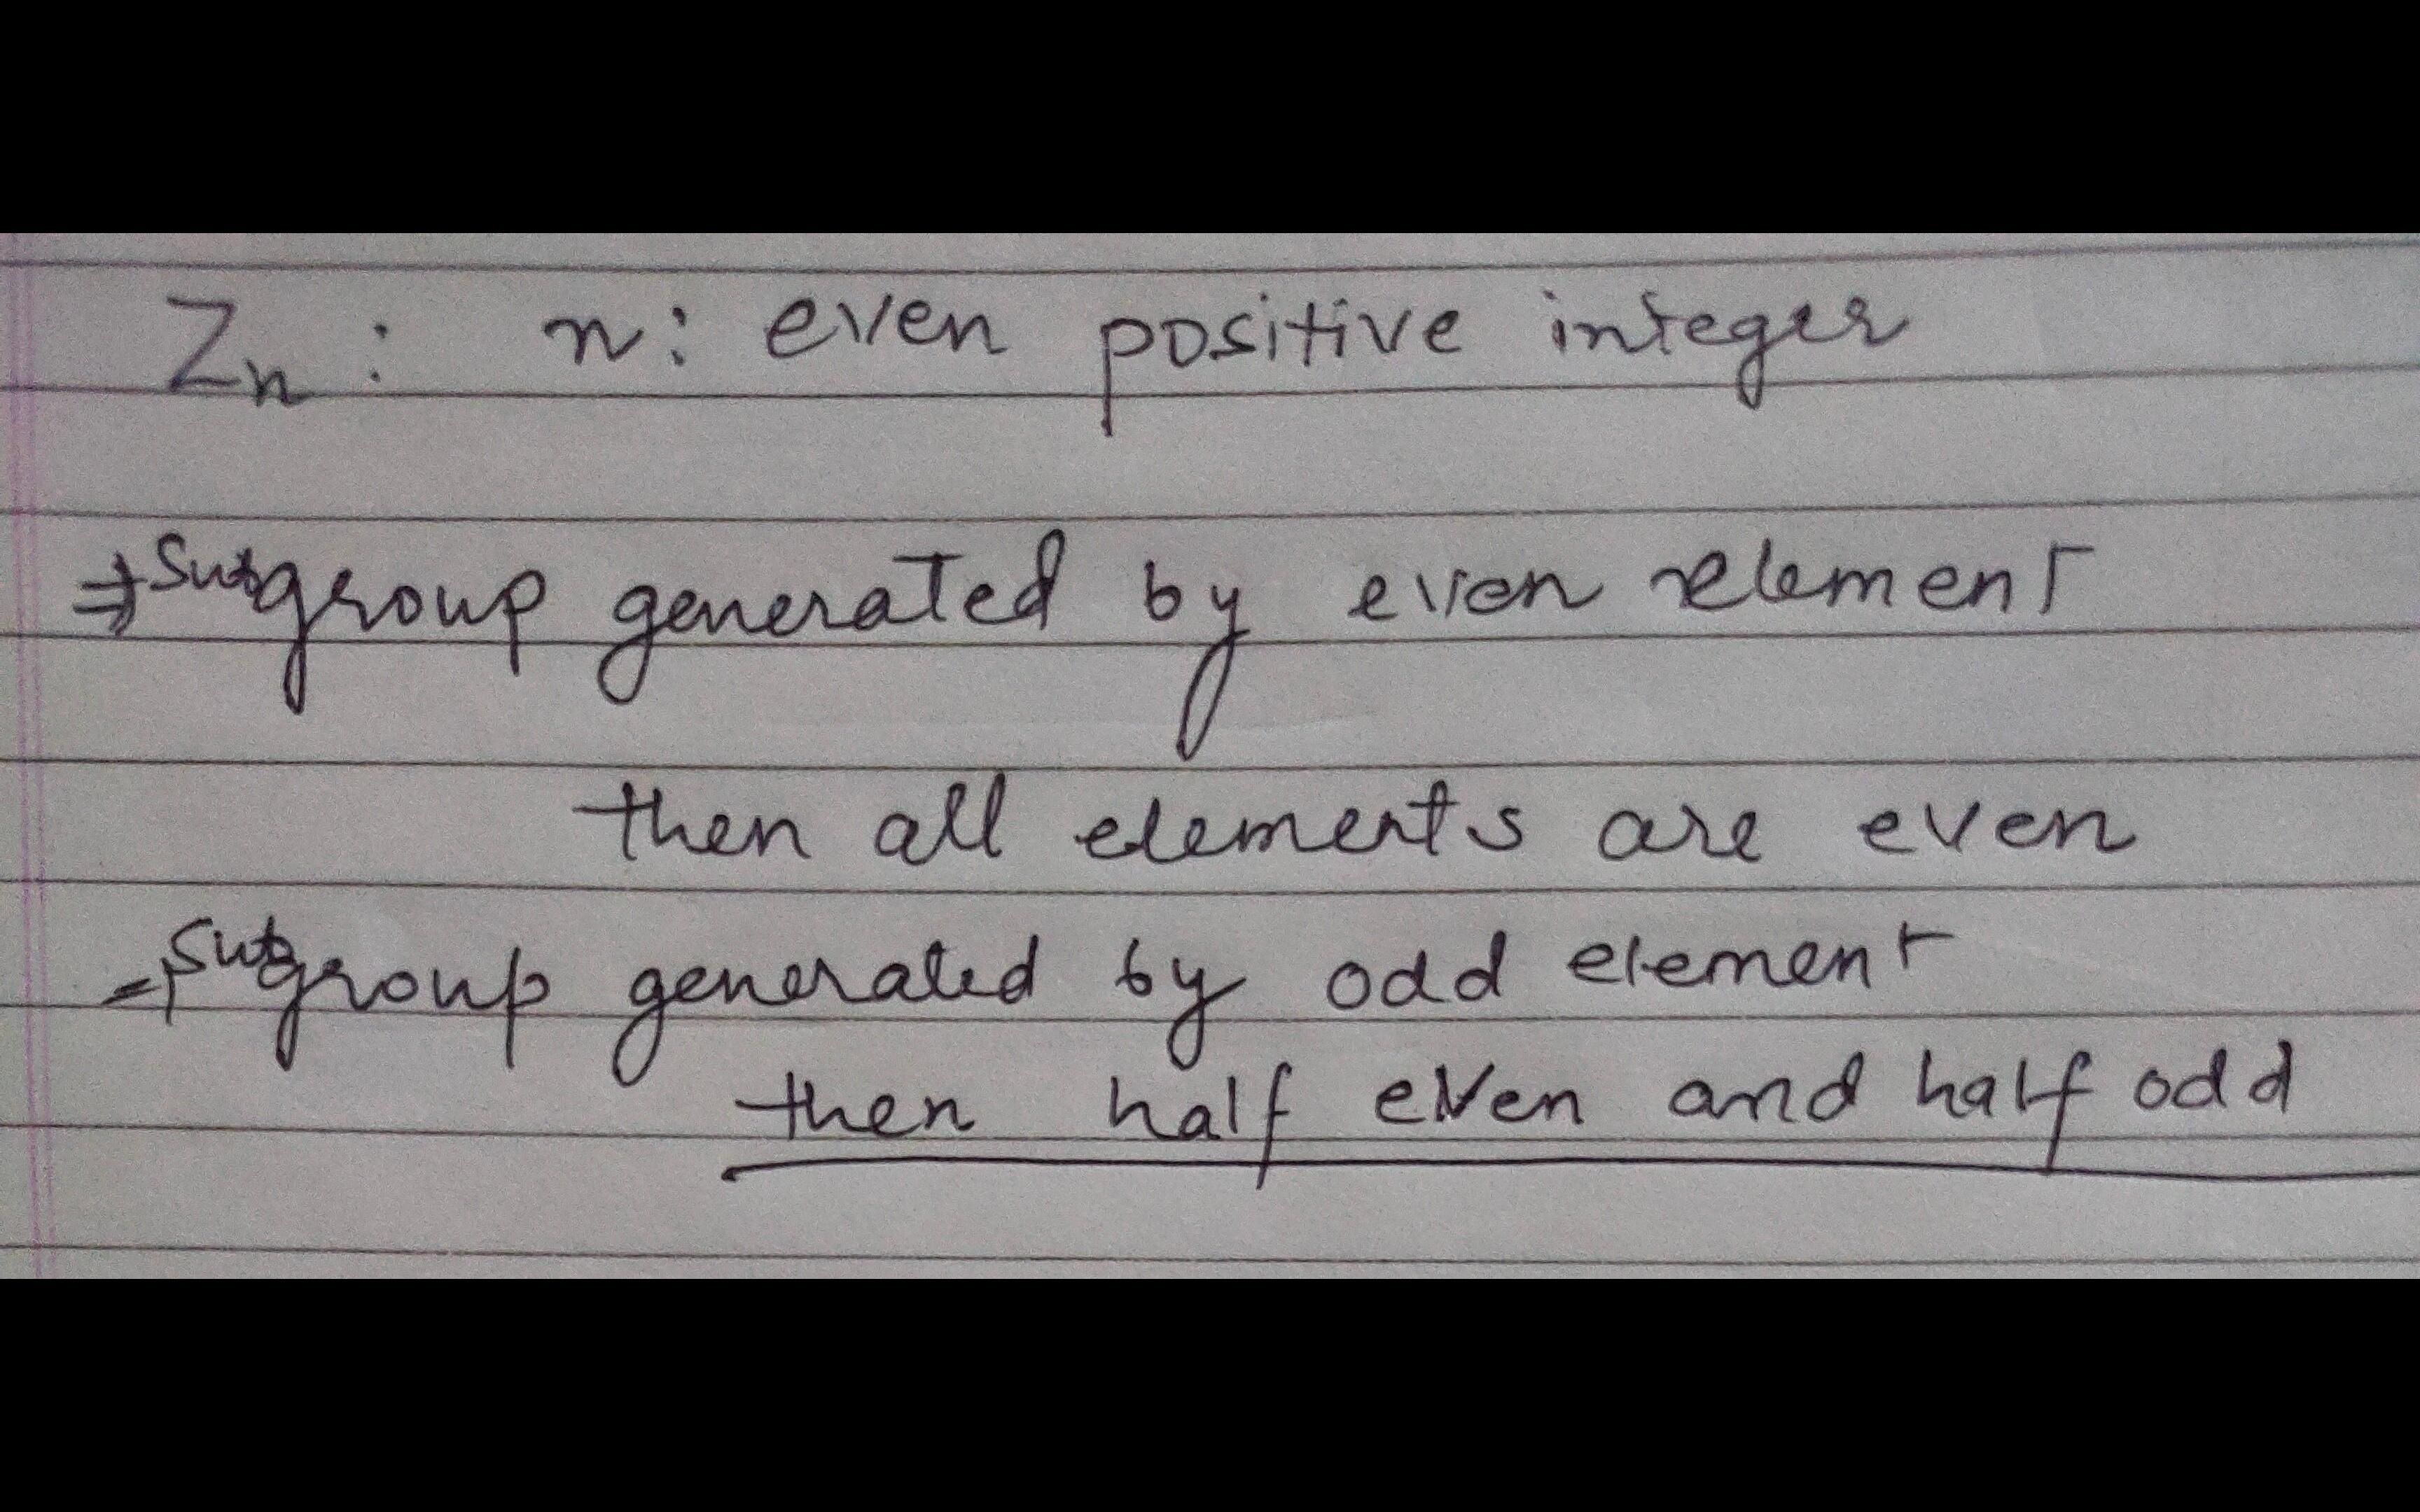 Zn : n: even positive integer
⇒ Subgroup generated by even element
then all elements are even
⇒ Subgroup generated by odd element
then half even and half odd